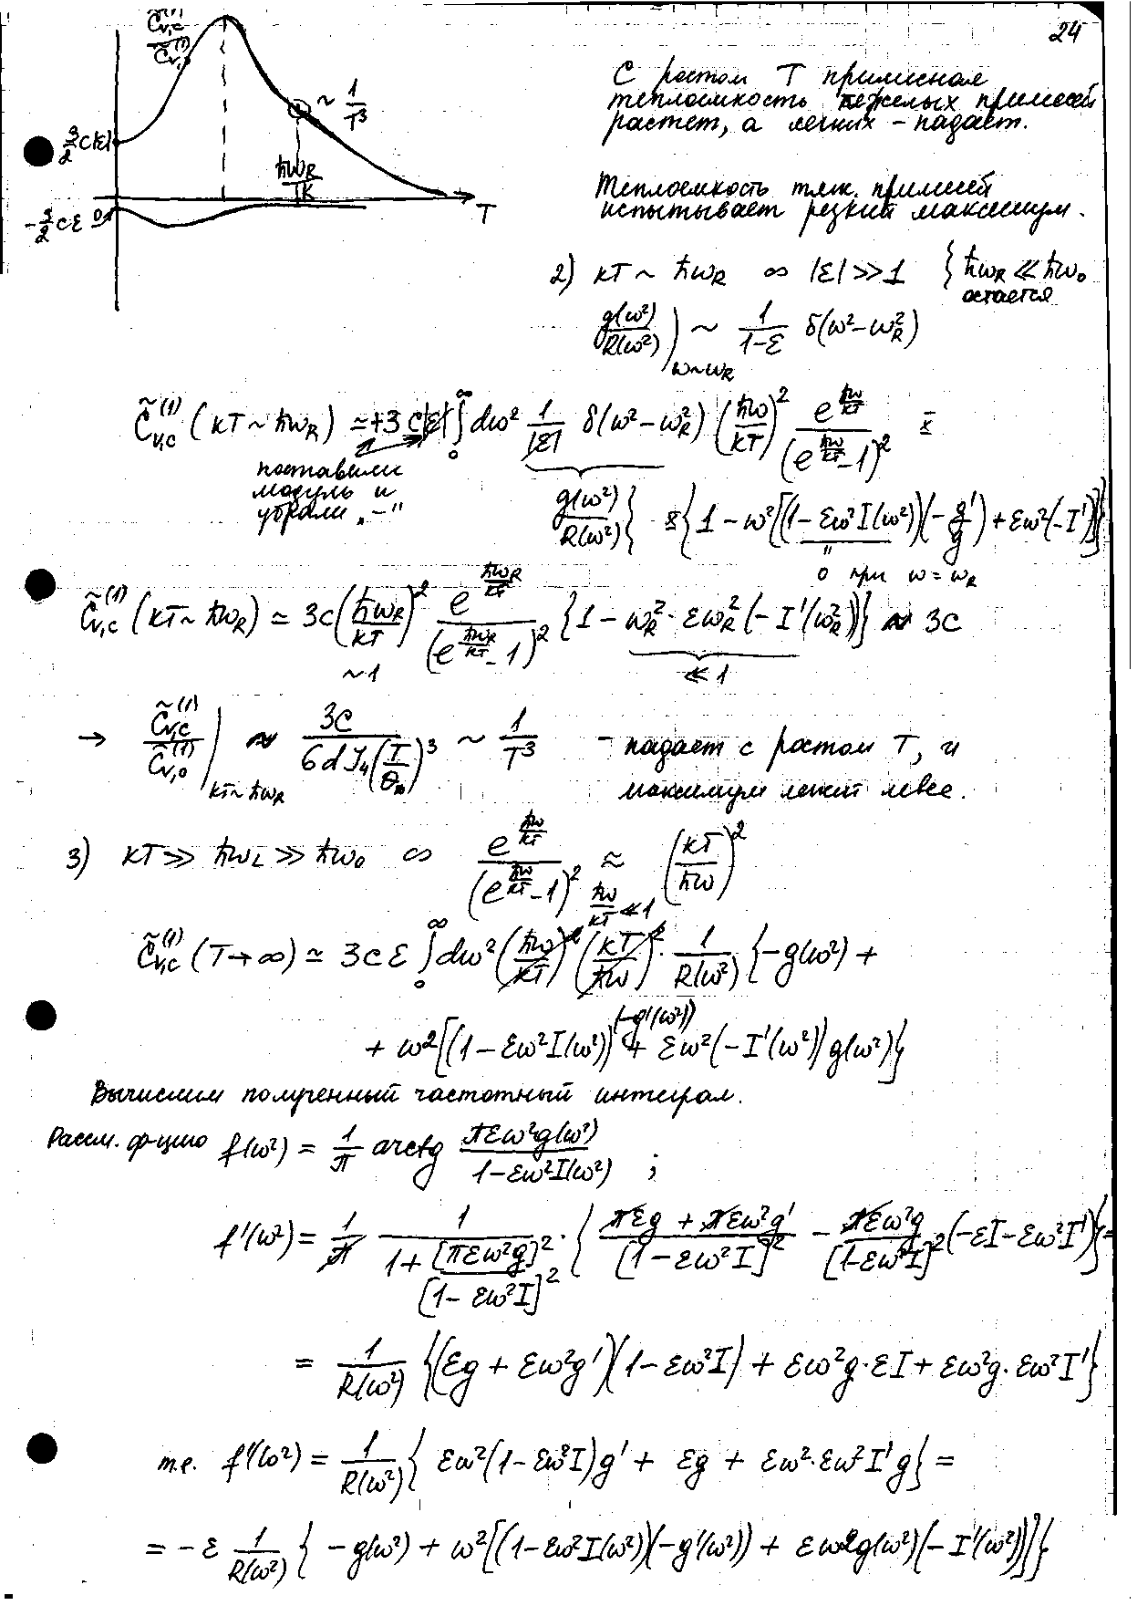 24
C̃_{v,c}^{(1)} / C̃_{v,0}^{(1)}
~ 1/T³
3/2 c|ε|
ħω_R / K
T
-3/2 cε 0
С ростом T примесная
теплоемкость тяжелых примесей
растет, а легких – падает.
Теплоемкость тяж. примесей
испытывает резкий максимум.
2) кT ~ ħω_R ∞ |ε| ≫ 1 { ħω_R ≪ ħω_0
остается
g(ω²)/R(ω²) )_{ω~ω_R} ~ 1/(1-ε) δ(ω²-ω_R²)
C̃_{v,c}^{(1)} (кT ~ ħω_R) ≃ +3 c|ε| ∫_0^∞ dω² 1/|ε| δ(ω²-ω_R²) (ħω/кT)² e^{ħω/кT} / (e^{ħω/кT}-1)² ×
поставили
модуль и
убрали „–“
g(ω²)/R(ω²) } × {1 - ω²[(1-εω²I(ω²))(-g'/g) + εω²(-I')]}
0 при ω = ω_R
C̃_{v,c}^{(1)} (кT ~ ħω_R) ≃ 3c (ħω_R/кT)² e^{ħω_R/кT} / (e^{ħω_R/кT}-1)² {1 - ω_R²·εω_R²(-I'(ω_R²))} ≈ 3c
~1 ≪ 1
→ C̃_{v,c}^{(1)} / C̃_{v,0}^{(1)} |_{кT~ħω_R} ≈ 3c / 6dJ_4(T/θ)³ ~ 1/T³ – падает с ростом T, и
максимум лежит левее.
3) кT ≫ ħω_L ≫ ħω_0 ∞ e^{ħω/кT} / (e^{ħω/кT}-1)² ≈_{ħω/кT ≪ 1} (кT/ħω)²
C̃_{v,c}^{(1)} (T→∞) ≃ 3cε ∫_0^∞ dω² (ħω/кT)² (кT/ħω)² · 1/R(ω²) {-g(ω²) +
+ ω²[(1-εω²I(ω²))(-g'(ω²)) + εω²(-I'(ω²))g(ω²)]}
Вычислим полученный частотный интеграл.
Рассм. ф-цию f(ω²) = 1/π arctg πεω²g(ω²) / (1-εω²I(ω²)) ;
f'(ω²) = 1/π · 1 / (1 + [πεω²g]²/[1-εω²I]²) · { (πεg + πεω²g') / [1-εω²I] - πεω²g / [1-εω²I]² (-εI-εω²I') } =
= 1/R(ω²) {(εg + εω²g')(1-εω²I) + εω²g·εI + εω²g·εω²I'}
т.е. f'(ω²) = 1/R(ω²) { εω²(1-εω²I)g' + εg + εω²·εω²I'g } =
= -ε 1/R(ω²) { -g(ω²) + ω²[(1-εω²I(ω²))(-g'(ω²)) + εω²g(ω²)(-I'(ω²))]}